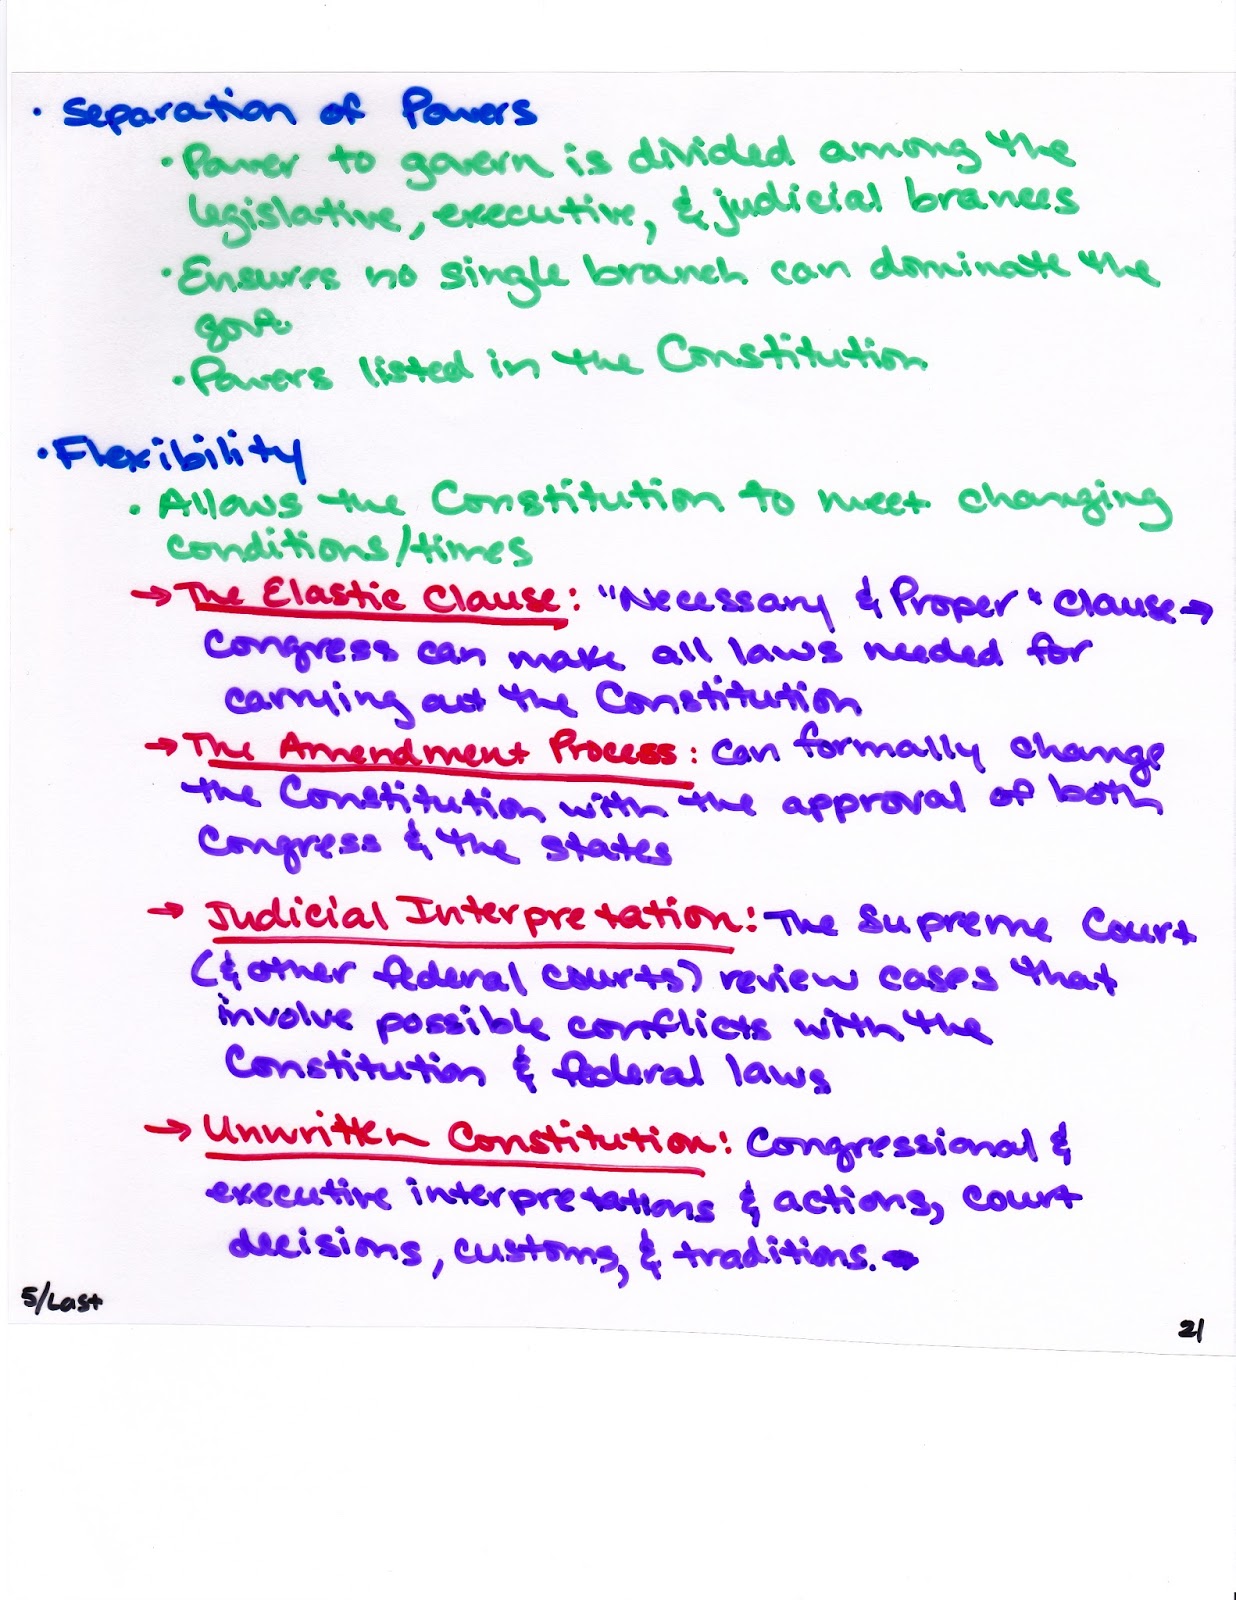 · Separation of Powers
· Power to govern is divided among the
legislative, executive, & judicial branees
· Ensures no single branch can dominate the
govt
· Powers listed in the Constitution
· Flexibility
· Allows the Constitution to meet changing
conditions/times
→ The Elastic Clause: "Necessary & Proper" clause →
Congress can make all laws needed for
carrying out the Constitution
→ The Amendment Process: can formally change
the Constitution with the approval of both
Congress & the states
→ Judicial Interpretation: The Supreme Court
(& other federal courts) review cases that
involve possible conflicts with the
Constitution & federal laws
→ Unwritten Constitution: Congressional &
executive interpretations & actions, court
decisions, customs, & traditions.
5/Last
21